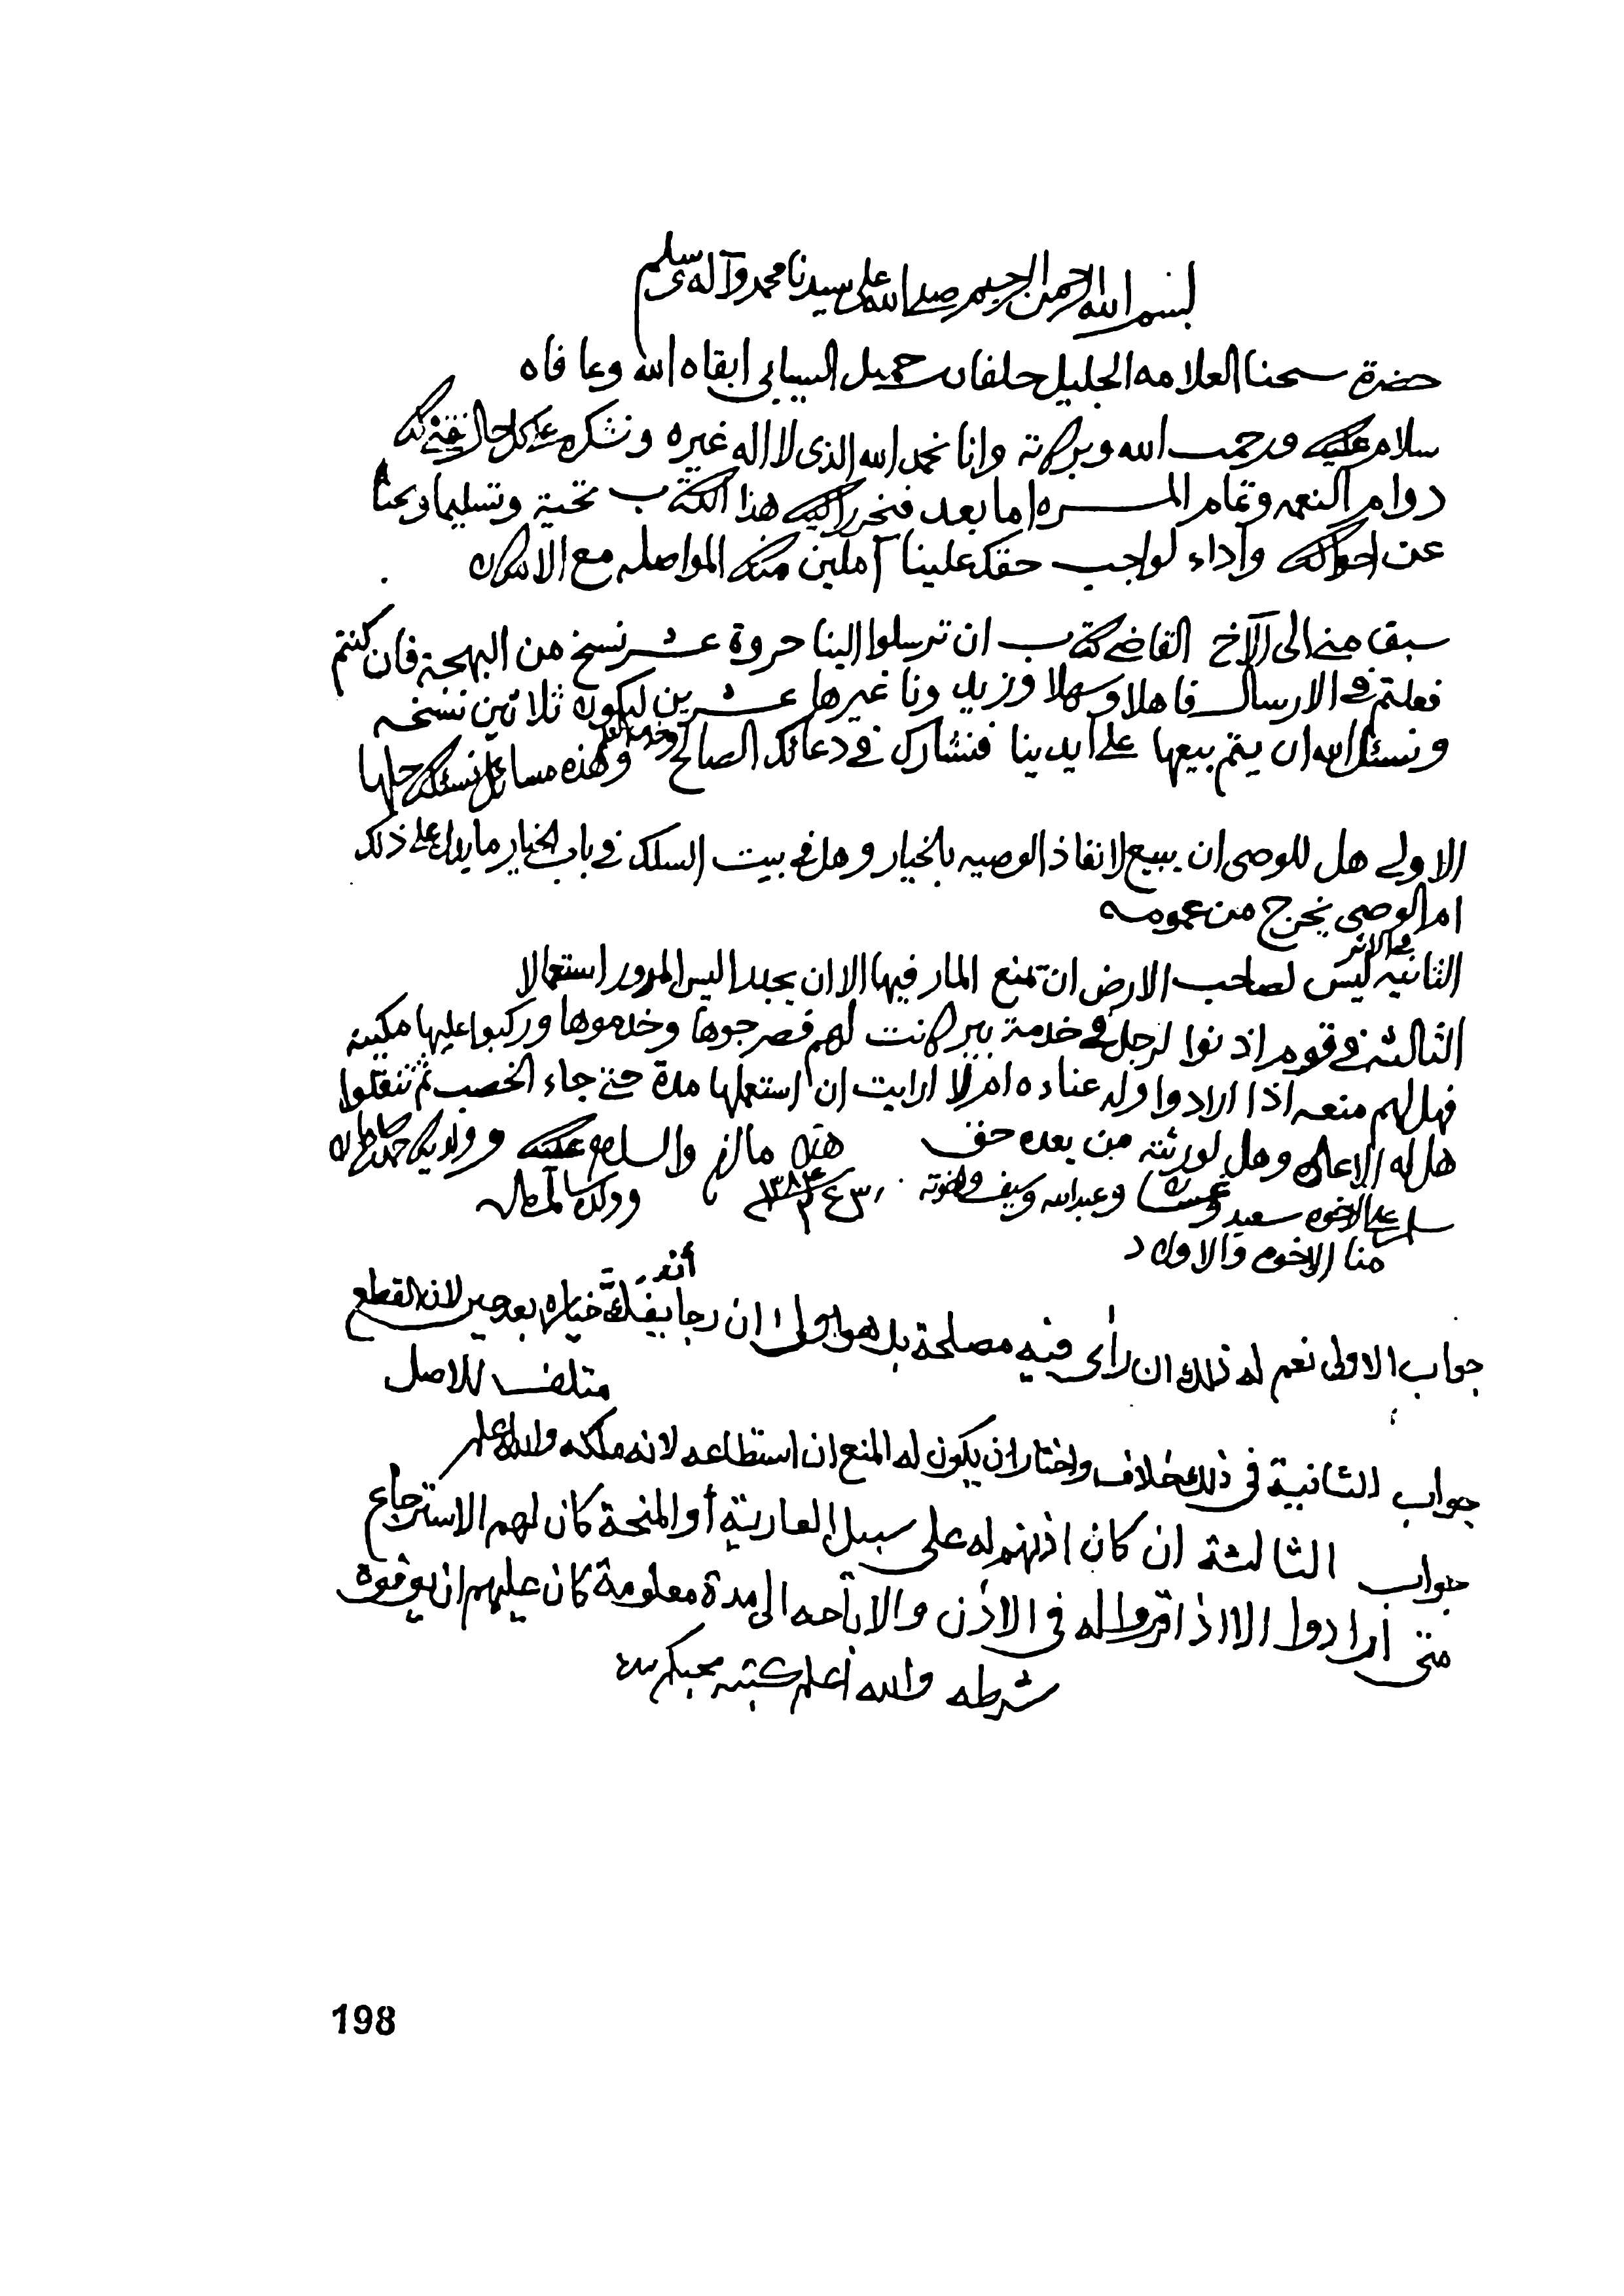 بسم الله الرحمن الرحيم صلى الله على سيدنا محمد وآله وسلم
حضرة شيخنا العلامه الجليل خلفان جميل السيابي ابقاه الله وعافاه
سلام عليكم ورحمت الله وبركاته وانا نحمد الله الذى لا اله غيره ونشكره على كل حال
دوام النعمه وتمام المسره اما بعد فنحرر اليكم هذا الكتاب تحية وتسليما وبحثا
عن احوالكم واداء لواجب حقكم علينا آملين منكم المواصله مع الامكان
سبق منى الى الاخ القاضى كتاب ان ترسلوا الينا حروة عشر نسخ من البهجة فان كنتم
فعلتم فى الارسال فاهلا وسهلا وزيدونا غيرها عشرين ليكون ثلاثين نسخه
ونسئل الله ان يتم بيعها على ايدينا فنشارك فى دعائكم الصالح وخدمة العلم وهذه مسائل نسئلك حلها
الاولى هل للوصى ان يبيع لانفاذ الوصيه بالخيار وهل فى بيت السلك فى باب الخيار ما يدل على ذلك
ام الوصى يخرج من عمومه
الثانيه فى الاثر ليس لصاحب الارض ان تمنع المار فيها الا ان يجدد اليس المرور استعمالا
الثالثه فى قوم اذنوا لرجل فى خدمة بير كانت لهم فصرجوها وخدموها وركبوا عليها مكينه
فهل لهم منعه اذا ارادوا وله عناده ام لا ارايت ان استعملها مدة حتى جاء الخصب ثم تنقلوا
هل له الاعاده وهل لورثته من بعده حق هذا ما لزم والسلام عليكم
سلم على الاخوه سعيد وعبدالله وسيف واخوته ٣ ع ٢ ١٣٨٣
منا الاخوه والاولاد
جواب الاولى نعم له ذلك ان رأى فيه مصلحة بل هو اولى ان رجا بيفكّه خياره بعد حين لان القطع
متلف للاصل
جواب الثانية فى ذلك خلاف واختار ان يكون له المنع ان استطاعه لانه ملكه والله اعلم
جواب الثالثة ان كان اذنهم له على سبيل العارية أو المنحة كان لهم الاسترجاع
متى ارادوا الا اذا اقروا له فى الاذن والاباحه الى مدة معلومة كان عليهم ان يوفوه
شرطه والله اعلم كتبه محبكم
198